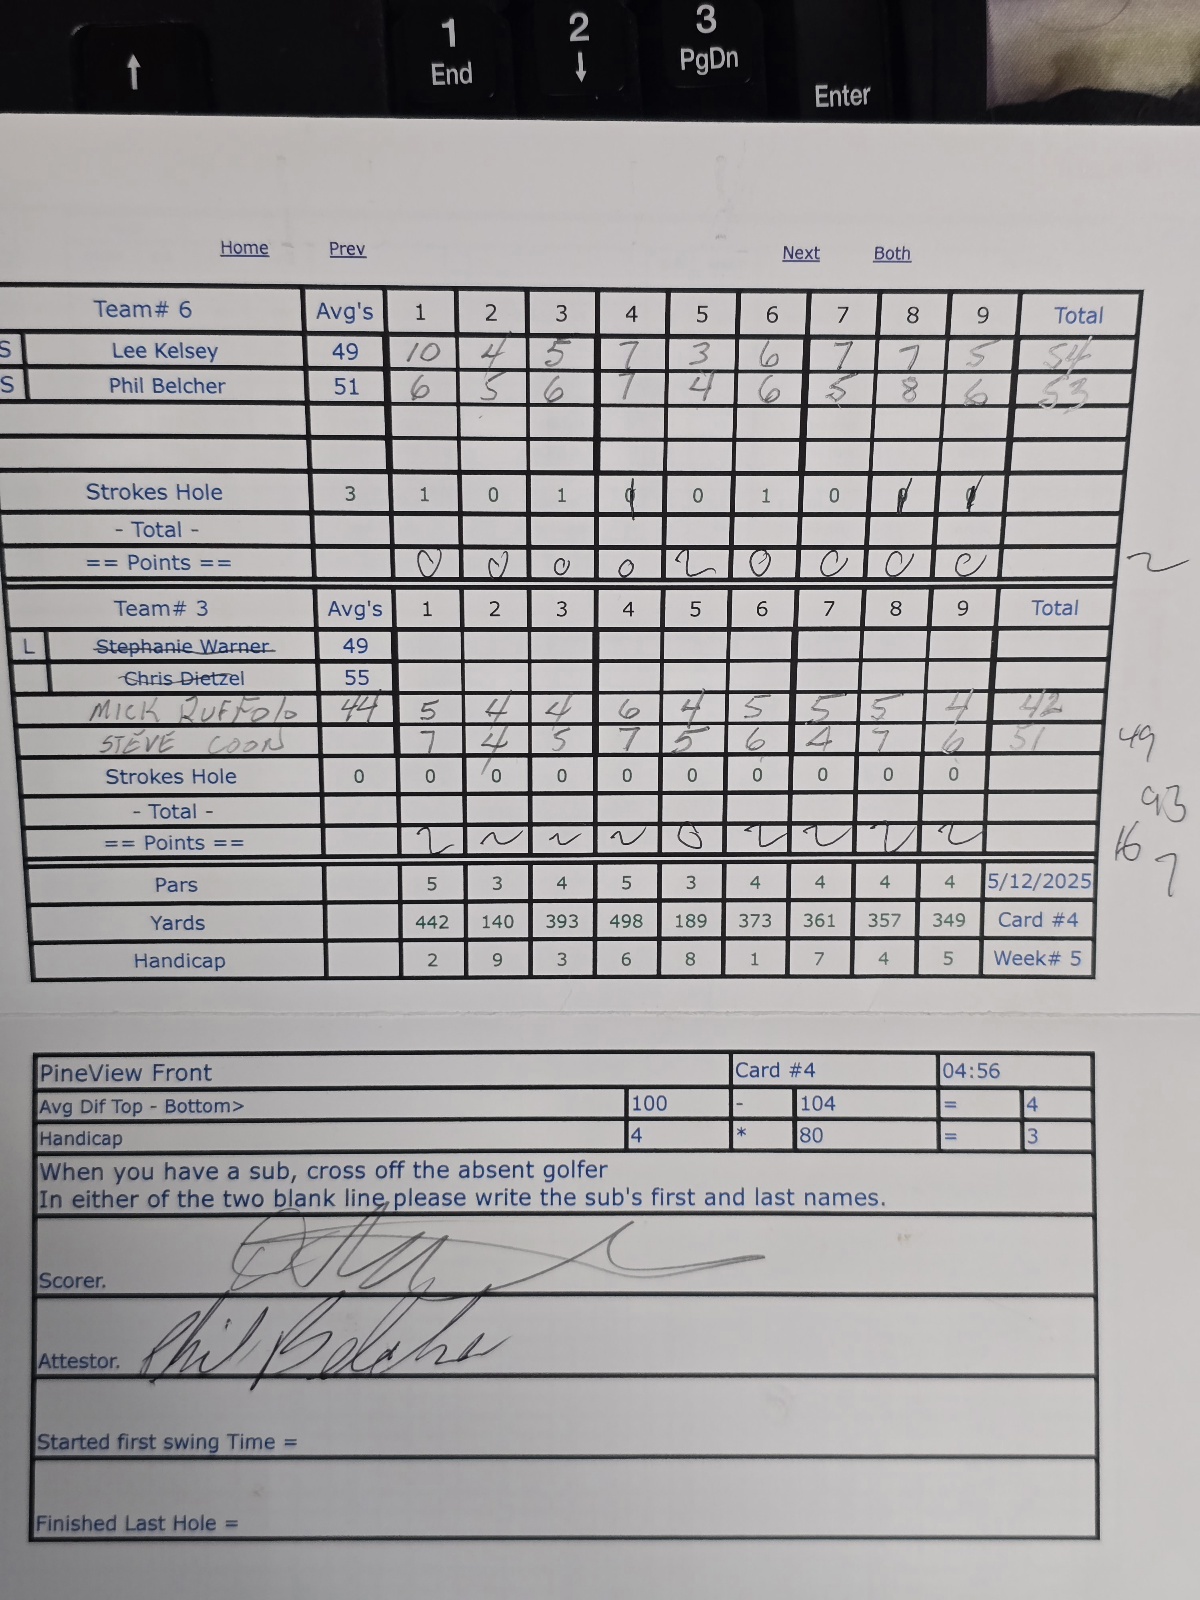 ↑ 1 End 2 ↓ 3 PgDn Enter
Home Prev Next Both
Team# 6 Avg's 1 2 3 4 5 6 7 8 9 Total
S Lee Kelsey 49 10 4 5 7 3 6 7 7 5 54
S Phil Belcher 51 6 5 6 7 4 6 5 8 6 53
Strokes Hole 3 1 0 1 0 1 0
- Total -
== Points == 0 0 0 0 2 0 0 0 0 2
Team# 3 Avg's 1 2 3 4 5 6 7 8 9 Total
L Stephanie Warner 49
Chris Dietzel 55
MICK RUFFOLO 44 5 4 4 6 4 5 5 5 4 42
STEVE COON 7 4 5 7 5 6 4 7 6 51 49
Strokes Hole 0 0 0 0 0 0 0 0 0 0
- Total - 93
== Points == 2 2 2 2 0 2 2 2 2 16
7
Pars 5 3 4 5 3 4 4 4 4 5/12/2025
Yards 442 140 393 498 189 373 361 357 349 Card #4
Handicap 2 9 3 6 8 1 7 4 5 Week# 5
PineView Front Card #4 04:56
Avg Dif Top - Bottom> 100 - 104 = 4
Handicap 4 * 80 = 3
When you have a sub, cross off the absent golfer
In either of the two blank line please write the sub's first and last names.
Scorer.
Attestor. Phil Belcher
Started first swing Time =
Finished Last Hole =